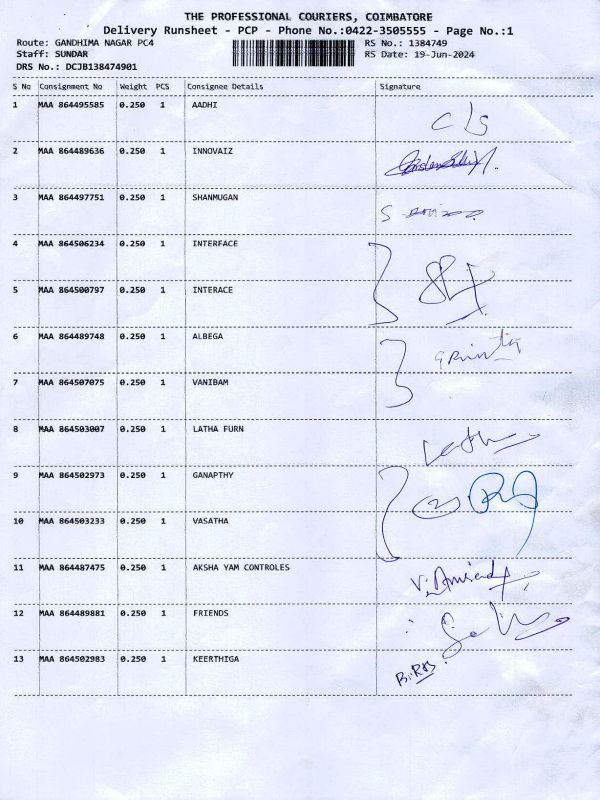 THE PROFESSIONAL COURIERS, COIMBATORE
Delivery Runsheet - PCP - Phone No.:0422-3505555 - Page No.:1
Route: GANDHIMA NAGAR PC4 RS No.: 1384749
Staff: SUNDAR RS Date: 19-Jun-2024
DRS No.: DCJB138474901
S No Consignment No Weight PCS Consignee Details Signature
1 MAA 864495585 0.250 1 AADHI
2 MAA 864489636 0.250 1 INNOVAIZ
3 MAA 864497751 0.250 1 SHANMUGAN
4 MAA 864506234 0.250 1 INTERFACE
5 MAA 864500797 0.250 1 INTERACE
6 MAA 864489748 0.250 1 ALBEGA
7 MAA 864507075 0.250 1 VANIBAM
8 MAA 864503007 0.250 1 LATHA FURN
9 MAA 864502973 0.250 1 GANAPTHY
10 MAA 864503233 0.250 1 VASATHA
11 MAA 864487475 0.250 1 AKSHA YAM CONTROLES
12 MAA 864489881 0.250 1 FRIENDS
13 MAA 864502983 0.250 1 KEERTHIGA